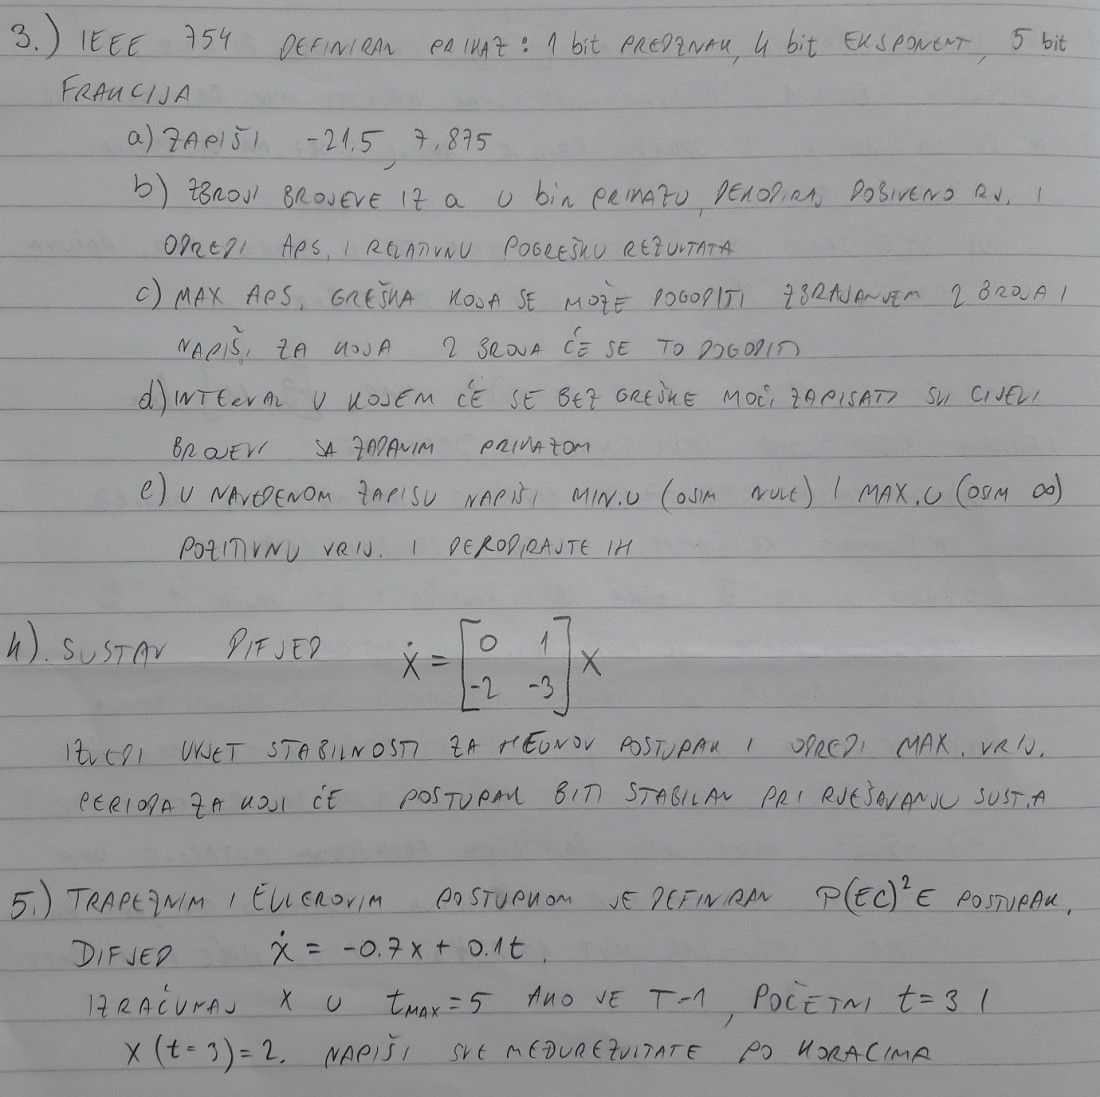 3.) IEEE 754 DEFINIRAN PRIKAZ: 1 bit PREDZNAK, 4 bit EKSPONENT, 5 bit
FRAKCIJA
a) ZAPIŠI -21.5, 7.875
b) ZBROJI BROJEVE IZ a U bin PRIKAZU, DEKODIRAJ DOBIVENO RJ. I
ODREDI APS. I RELATIVNU POGREŠKU REZULTATA
c) MAX APS. GREŠKA KOJA SE MOŽE DOGODITI ZBRAJANJEM 2 BROJA I
NAPIŠI ZA KOJA 2 BROJA ĆE SE TO DOGODITI
d) INTERVAL U KOJEM ĆE SE BEZ GREŠKE MOĆI ZAPISATI SVI CIJELI
BROJEVI SA ZADANIM PRIKAZOM
e) U NAVEDENOM ZAPISU NAPIŠI MIN.U (OSIM NULE) I MAX.U (OSIM ∞)
POZITIVNU VRIJ. I DEKODIRAJTE IH
4). SUSTAV DIFJED ẋ = [0 1
-2 -3] x
IZVEDI UVJET STABILNOSTI ZA HEUNOV POSTUPAK I ODREDI MAX. VRIJ.
PERIODA ZA KOJI ĆE POSTUPAK BITI STABILAN PRI RJEŠAVANJU SUST.A
5.) TRAPEZNIM I EULEROVIM POSTUPKOM JE DEFINIRAN P(EC)²E POSTUPAK.
DIFJED ẋ = -0.7x + 0.1t.
IZRAČUNAJ X U tMAX = 5 AKO JE T=1, POČETNI t = 3 I
X (t = 3) = 2. NAPIŠI SVE MEĐUREZULTATE PO KORACIMA